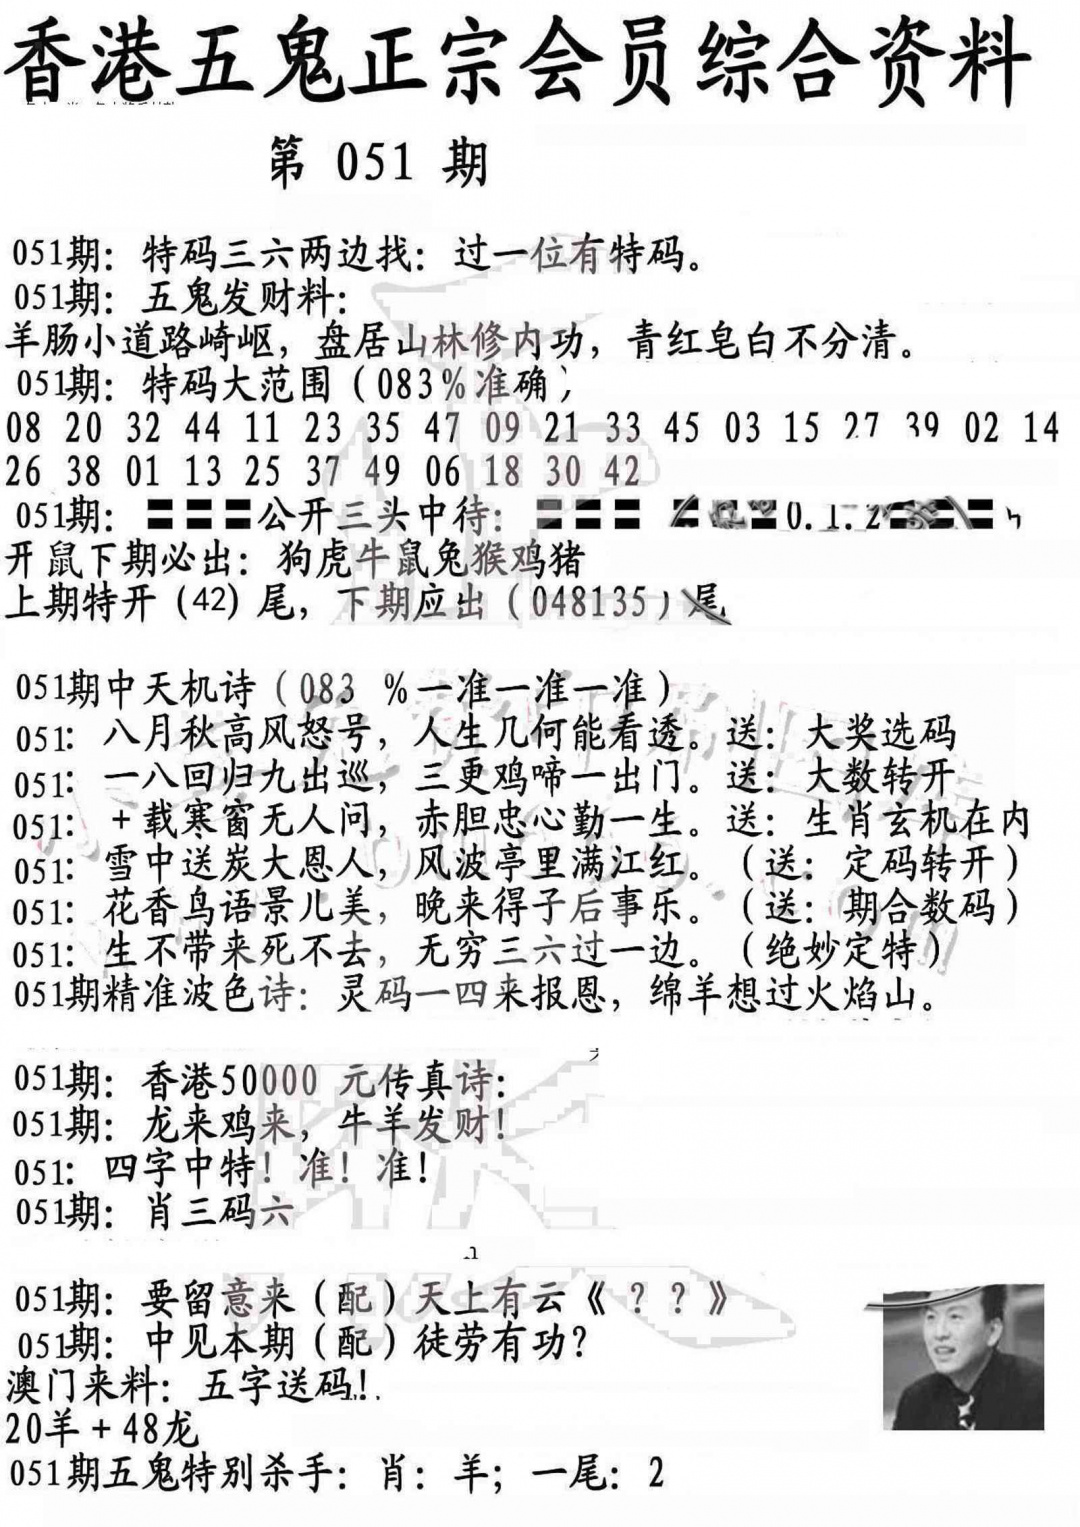 香港五鬼正宗会员综合资料
第 051 期
051期：特码三六两边找：过一位有特码。
051期：五鬼发财料：
羊肠小道路崎岖，盘居山林修内功，青红皂白不分清。
051期：特码大范围（083%准确）
08 20 32 44 11 23 35 47 09 21 33 45 03 15 27 39 02 14
26 38 01 13 25 37 49 06 18 30 42
051期：〓〓〓公开三头中待：〓〓〓 0.1.2
开鼠下期必出：狗虎牛鼠兔猴鸡猪
上期特开（42）尾，下期应出（048135）尾
051期中天机诗（083 %一准一准一准）
051：八月秋高风怒号，人生几何能看透。送：大奖选码
051：一八回归九出巡，三更鸡啼一出门。送：大数转开
051：+载寒窗无人问，赤胆忠心勤一生。送：生肖玄机在内
051：雪中送炭大恩人，风波亭里满江红。（送：定码转开）
051：花香鸟语景儿美，晚来得子后事乐。（送：期合数码）
051：生不带来死不去，无穷三六过一边。（绝妙定特）
051期精准波色诗：灵码一四来报恩，绵羊想过火焰山。
051期：香港50000 元传真诗：
051期：龙来鸡来，牛羊发财！
051：四字中特！准！准！
051期：肖三码六
051期：要留意来（配）天上有云《 ？？》
051期：中见本期（配）徒劳有功？
澳门来料：五字送码！
20羊+48龙
051期五鬼特别杀手：肖：羊；一尾：2